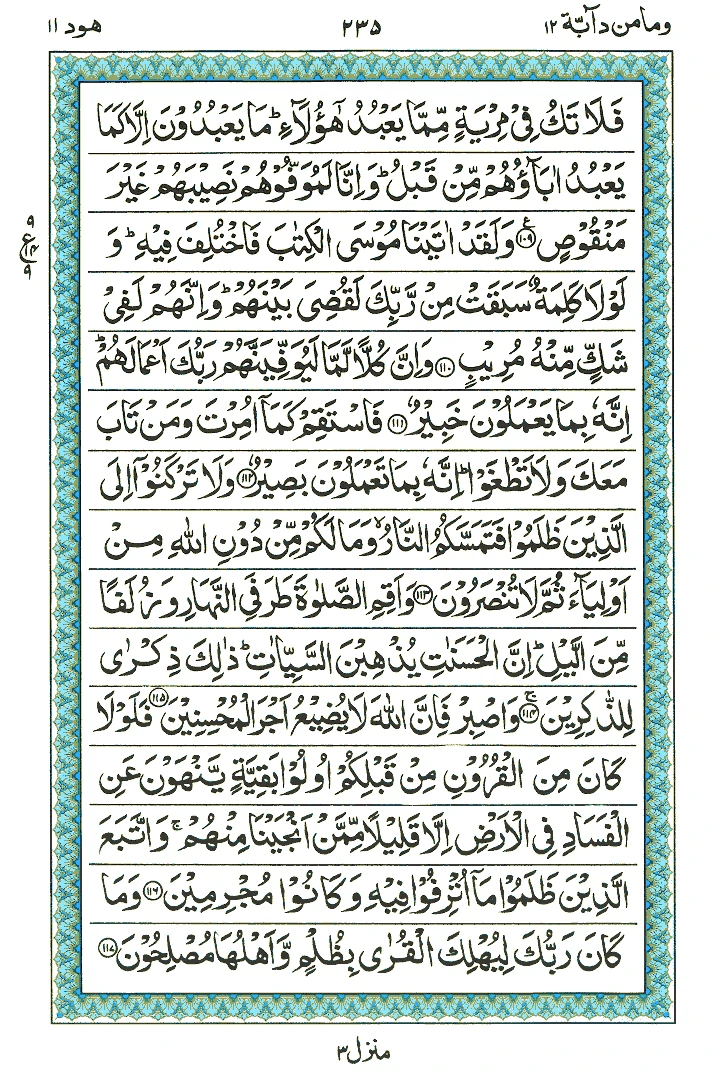 وما من دآبّة ١٢
٢٣٥
هود ١١
فَلَا تَكُ فِىْ مِرْيَةٍ مِّمَّا يَعْبُدُ هٰٓؤُلَآءِ ؕ مَا يَعْبُدُوْنَ اِلَّا كَمَا
يَعْبُدُ اٰبَآؤُهُمْ مِّنْ قَبْلُ ؕ وَاِنَّا لَمُوَفُّوْهُمْ نَصِيْبَهُمْ غَيْرَ
مَنْقُوْصٍ ﴿۱۰۹﴾ ع وَلَقَدْ اٰتَيْنَا مُوْسَى الْكِتٰبَ فَاخْتُلِفَ فِيْهِ ؕ وَ
٩
ع ١٤
٩
لَوْلَا كَلِمَةٌ سَبَقَتْ مِنْ رَّبِّكَ لَقُضِىَ بَيْنَهُمْ ؕ وَاِنَّهُمْ لَفِىْ
شَكٍّ مِّنْهُ مُرِيْبٍ ﴿۱۱۰﴾ وَاِنَّ كُلًّا لَّمَّا لَيُوَفِّيَنَّهُمْ رَبُّكَ اَعْمَالَهُمْ ؕ
اِنَّهٗ بِمَا يَعْمَلُوْنَ خَبِيْرٌ ﴿۱۱۱﴾ فَاسْتَقِمْ كَمَآ اُمِرْتَ وَمَنْ تَابَ
مَعَكَ وَلَا تَطْغَوْا ؕ اِنَّهٗ بِمَا تَعْمَلُوْنَ بَصِيْرٌ ﴿۱۱۲﴾ وَلَا تَرْكَنُوْٓا اِلَى
الَّذِيْنَ ظَلَمُوْا فَتَمَسَّكُمُ النَّارُ ۙ وَمَا لَكُمْ مِّنْ دُوْنِ اللّٰهِ مِنْ
اَوْلِيَآءَ ثُمَّ لَا تُنْصَرُوْنَ ﴿۱۱۳﴾ وَاَقِمِ الصَّلٰوةَ طَرَفَىِ النَّهَارِ وَزُلَفًا
مِّنَ الَّيْلِ ؕ اِنَّ الْحَسَنٰتِ يُذْهِبْنَ السَّيِّاٰتِ ؕ ذٰلِكَ ذِكْرٰى
لِلذّٰكِرِيْنَ ﴿۱۱۴﴾ ۚ وَاصْبِرْ فَاِنَّ اللّٰهَ لَا يُضِيْعُ اَجْرَ الْمُحْسِنِيْنَ ﴿۱۱۵﴾ فَلَوْلَا
كَانَ مِنَ الْقُرُوْنِ مِنْ قَبْلِكُمْ اُولُوْا بَقِيَّةٍ يَّنْهَوْنَ عَنِ
الْفَسَادِ فِى الْاَرْضِ اِلَّا قَلِيْلًا مِّمَّنْ اَنْجَيْنَا مِنْهُمْ ۚ وَاتَّبَعَ
الَّذِيْنَ ظَلَمُوْا مَآ اُتْرِفُوْا فِيْهِ وَكَانُوْا مُجْرِمِيْنَ ﴿۱۱۶﴾ وَمَا
كَانَ رَبُّكَ لِيُهْلِكَ الْقُرٰى بِظُلْمٍ وَّاَهْلُهَا مُصْلِحُوْنَ ﴿۱۱۷﴾
منزل ٣